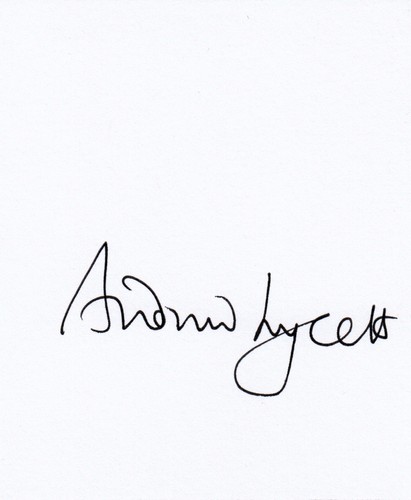 Andrew Lycett